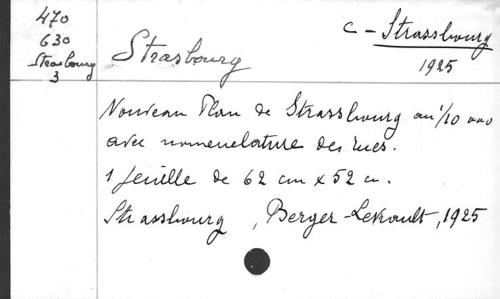 470
630
Strasbourg
3
Strasbourg
C - Strassbourg
1925
Nouveau Plan de Strassbourg au 1/10 000
avec nomenclature des rues.
1 feuille de 62 cm x 52 c.
Strassbourg, Berger-Levrault, 1925